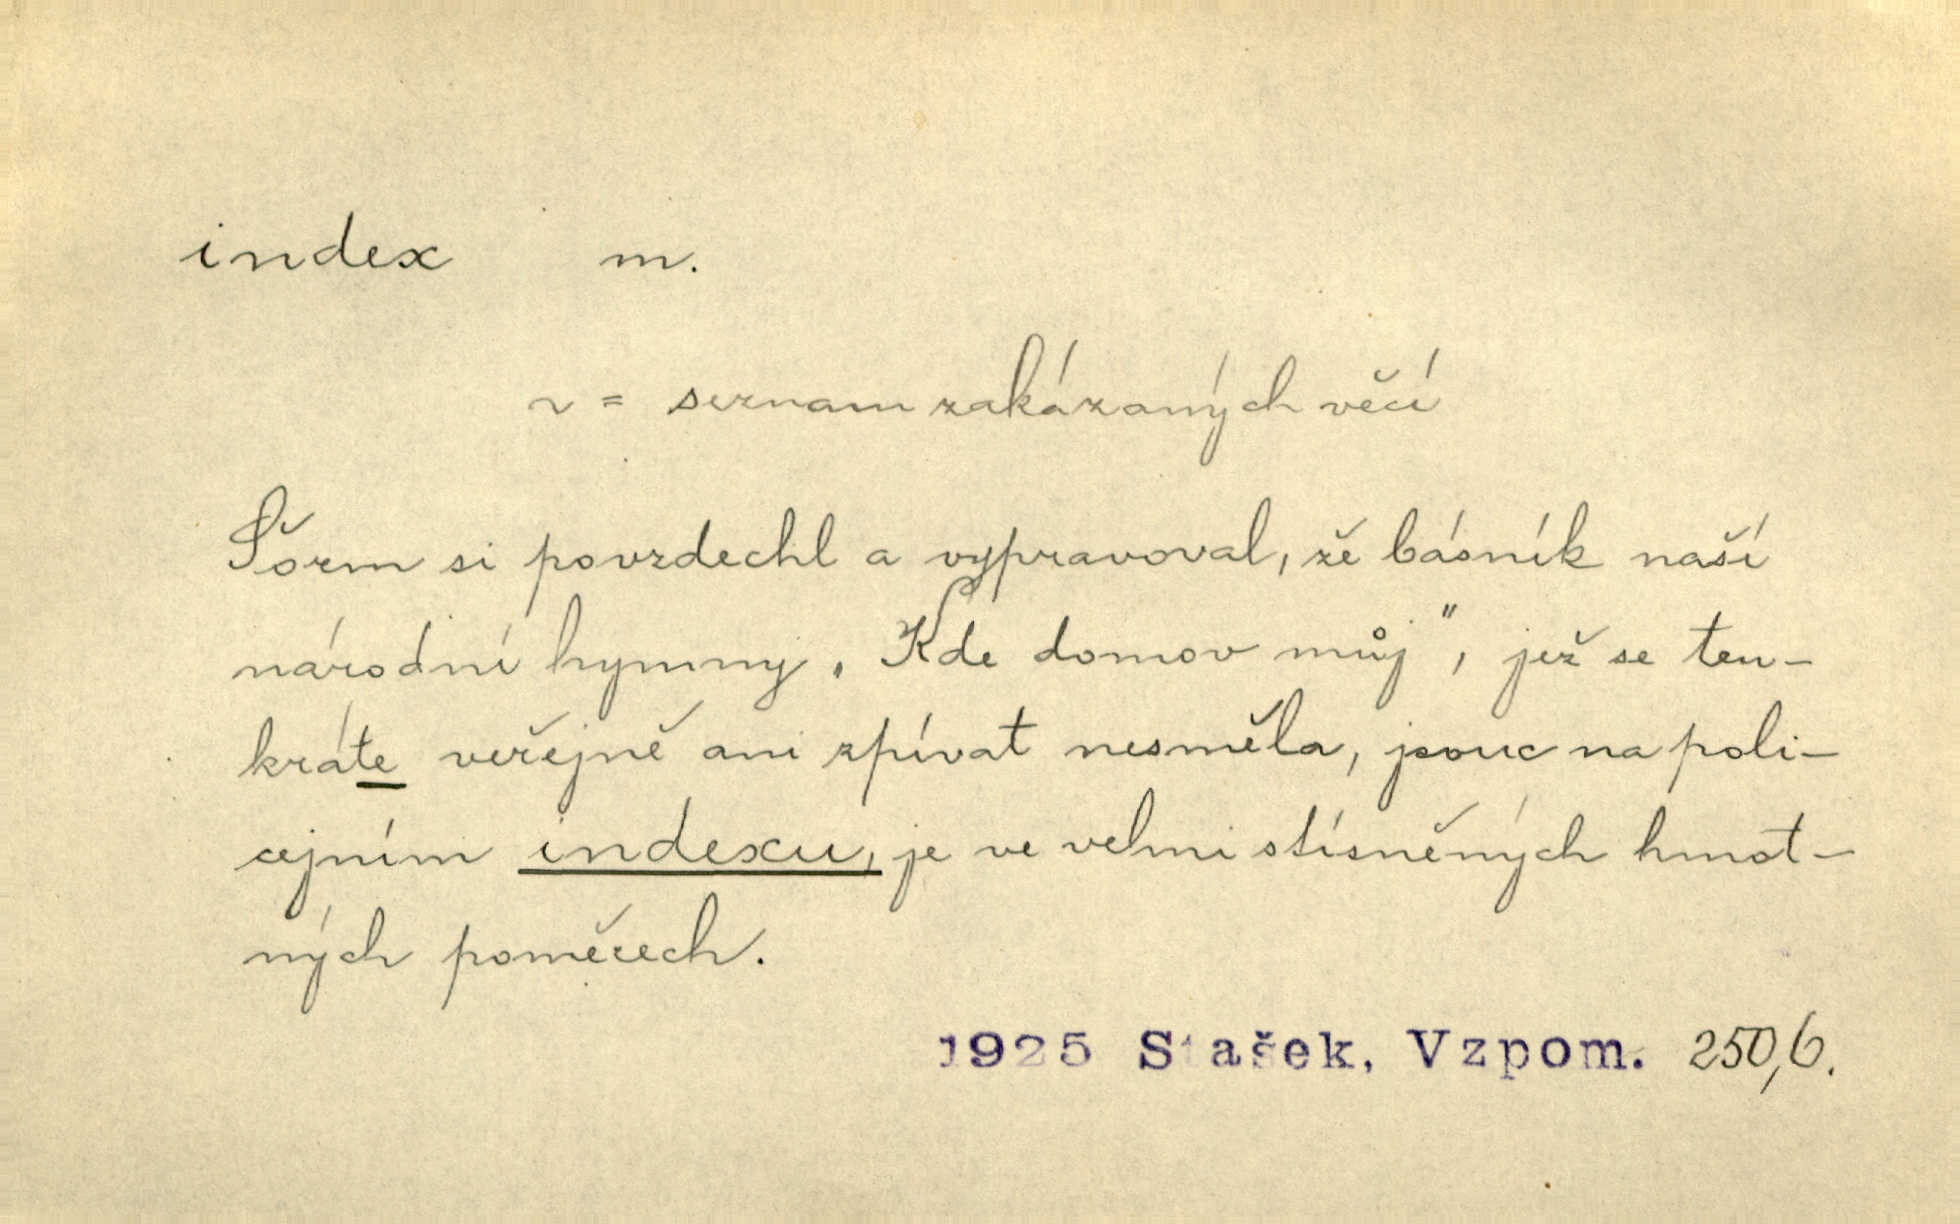 index m.
v = seznam zakázaných věcí
Šorm si povzdechl a vypravoval, že básník naší
národní hymny „Kde domov můj", jež se ten-
kráte veřejně ani zpívat nesměla, jsouc na poli-
cejním indexu, je ve velmi stísněných hmot-
ných poměrech.
1925 Stašek, Vzpom. 250,6.